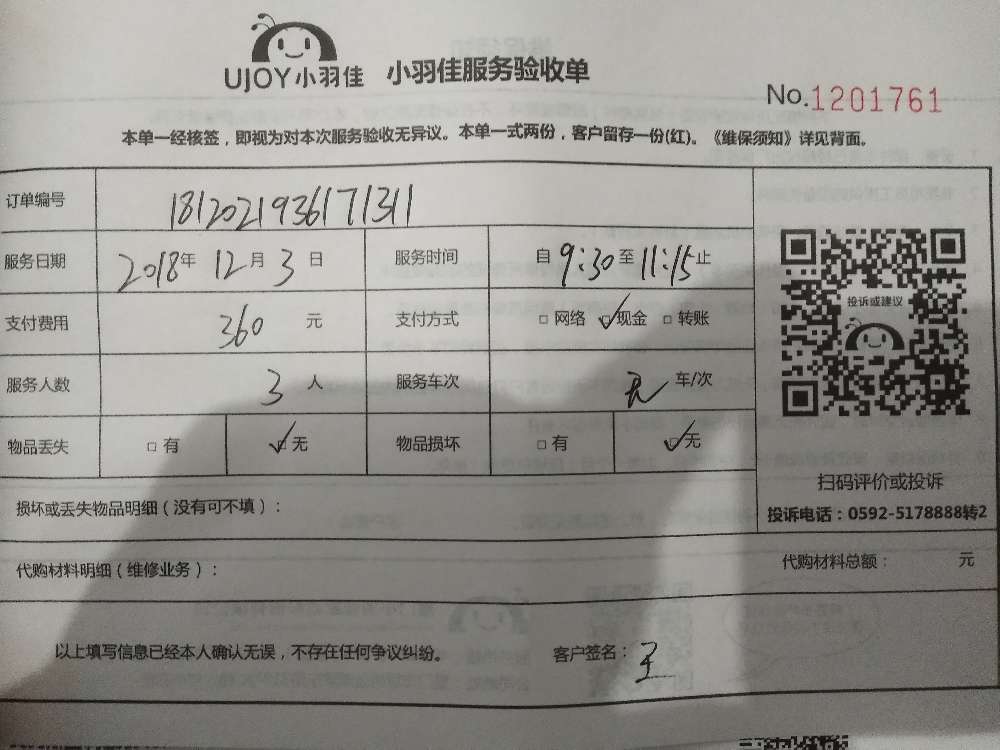 UJOY小羽佳 小羽佳服务验收单
No.1201761
本单一经核签，即视为对本次服务验收无异议。本单一式两份，客户留存一份(红)。《维保须知》详见背面。
订单编号 1812021936171311
服务日期 2018年 12月 3日 服务时间 自9:30至11:15止
支付费用 360 元 支付方式 □网络 ☑现金 □转账
服务人数 3 人 服务车次 无 车/次
物品丢失 □有 ☑无 物品损坏 □有 ☑无
投诉或建议
扫码评价或投诉
投诉电话：0592-5178888转2
损坏或丢失物品明细（没有可不填）：
代购材料明细（维修业务）： 代购材料总额： 元
以上填写信息已经本人确认无误，不存在任何争议纠纷。 客户签名：王